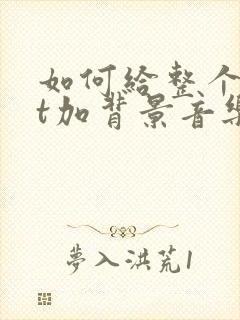 如何给整个
t加背景音乐
夢入洪荒1